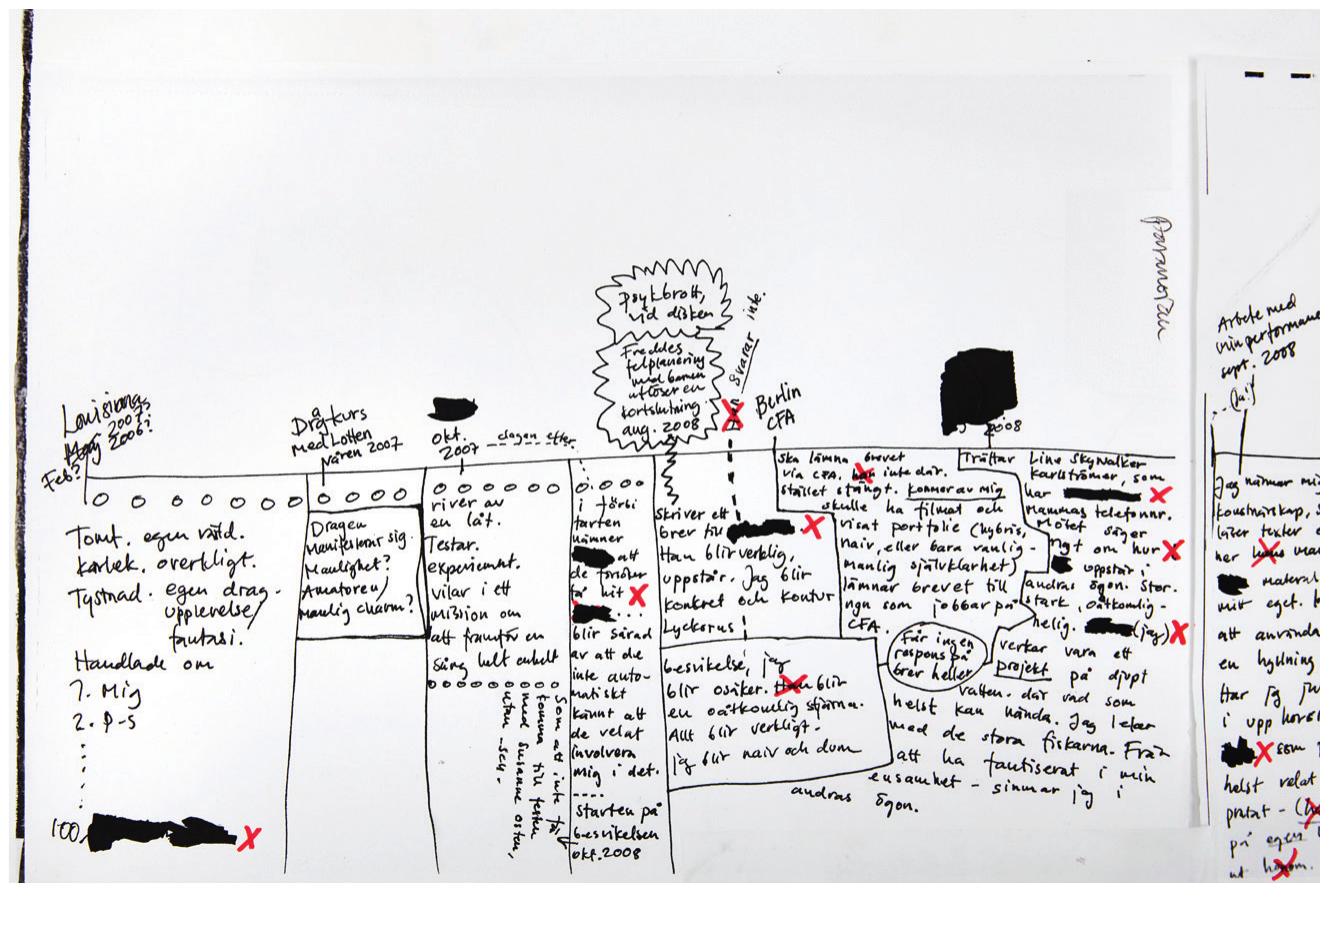 paranoian
psykbrott,
vid disken
Freddes
felplanering
med barnen
utlöser en
kortslutning.
aug. 2008
svarar inte.
Berlin
CFA
2008
Louisiana
2007?
Maj 2006?
Feb?
Dragkurs
med Lotten
Nåren 2007
okt.
2007
dagen efter
Tomt. egen värld.
kärlek. overkligt.
Tystnad. egen drag-
upplevelse/
fantasi.
Handlade om
1. Mig
2. P-S
100.
Dragen
Manifesterar sig.
Manlighet?
Amatören/
manlig charm?
river av
en låt.
Testar.
experiment.
vilar i ett
mission om
att framför en
sång helt enkelt
som att inte få
komma till festen
med Susanne Osten,
utan -scu-
i förbi
farten
nämner
att
de försöker
få hit
blir sårad
av att de
inte auto-
matiskt
känt att
de velat
involvera
mig i det.
starten på
besvikelsen
okt. 2008
skriver ett
brev till
Han blir verklig,
uppstår. Jag blir
konkret och kontur
Lyckorus
besvikelse, jag
blir osäker. Han blir
en oåtkomlig stjärna.
Allt blir verkligt.
jag blir naiv och dum
ska lämna brevet
via CFA. han inte där.
stället stängt. kommer av mig
skulle ha filmat och
visat portfolio (hybris,
naiv, eller bara vanlig-
manlig självklarhet)
lämnar brevet till
ngn som jobbar på
CFA.
Får ingen
respons på
brev heller
Träffar
Lina Skywalker
Karlströmer, som
har
mammas telefonnr.
Mötet säger
ngt om hur
uppstår i
andras ögon. stor.
stark, oåtkomlig-
helig. (jag)
verkar vara ett
projekt på djupt
vatten. där vad som
helst kan hända. Jag leker
med de stora fiskarna. Från
att ha fantiserat i min
ensamhet - simmar jag i
andras ögon.
Arbete med
min performance
sept. 2008
(jul)
Jag närmar mig
konstnärskap, s
läser texter e
ner
material
mitt eget.
att använda
en hyllning
Har jag
i upp
som
helst relat
pratat -
på egen
ut honom.